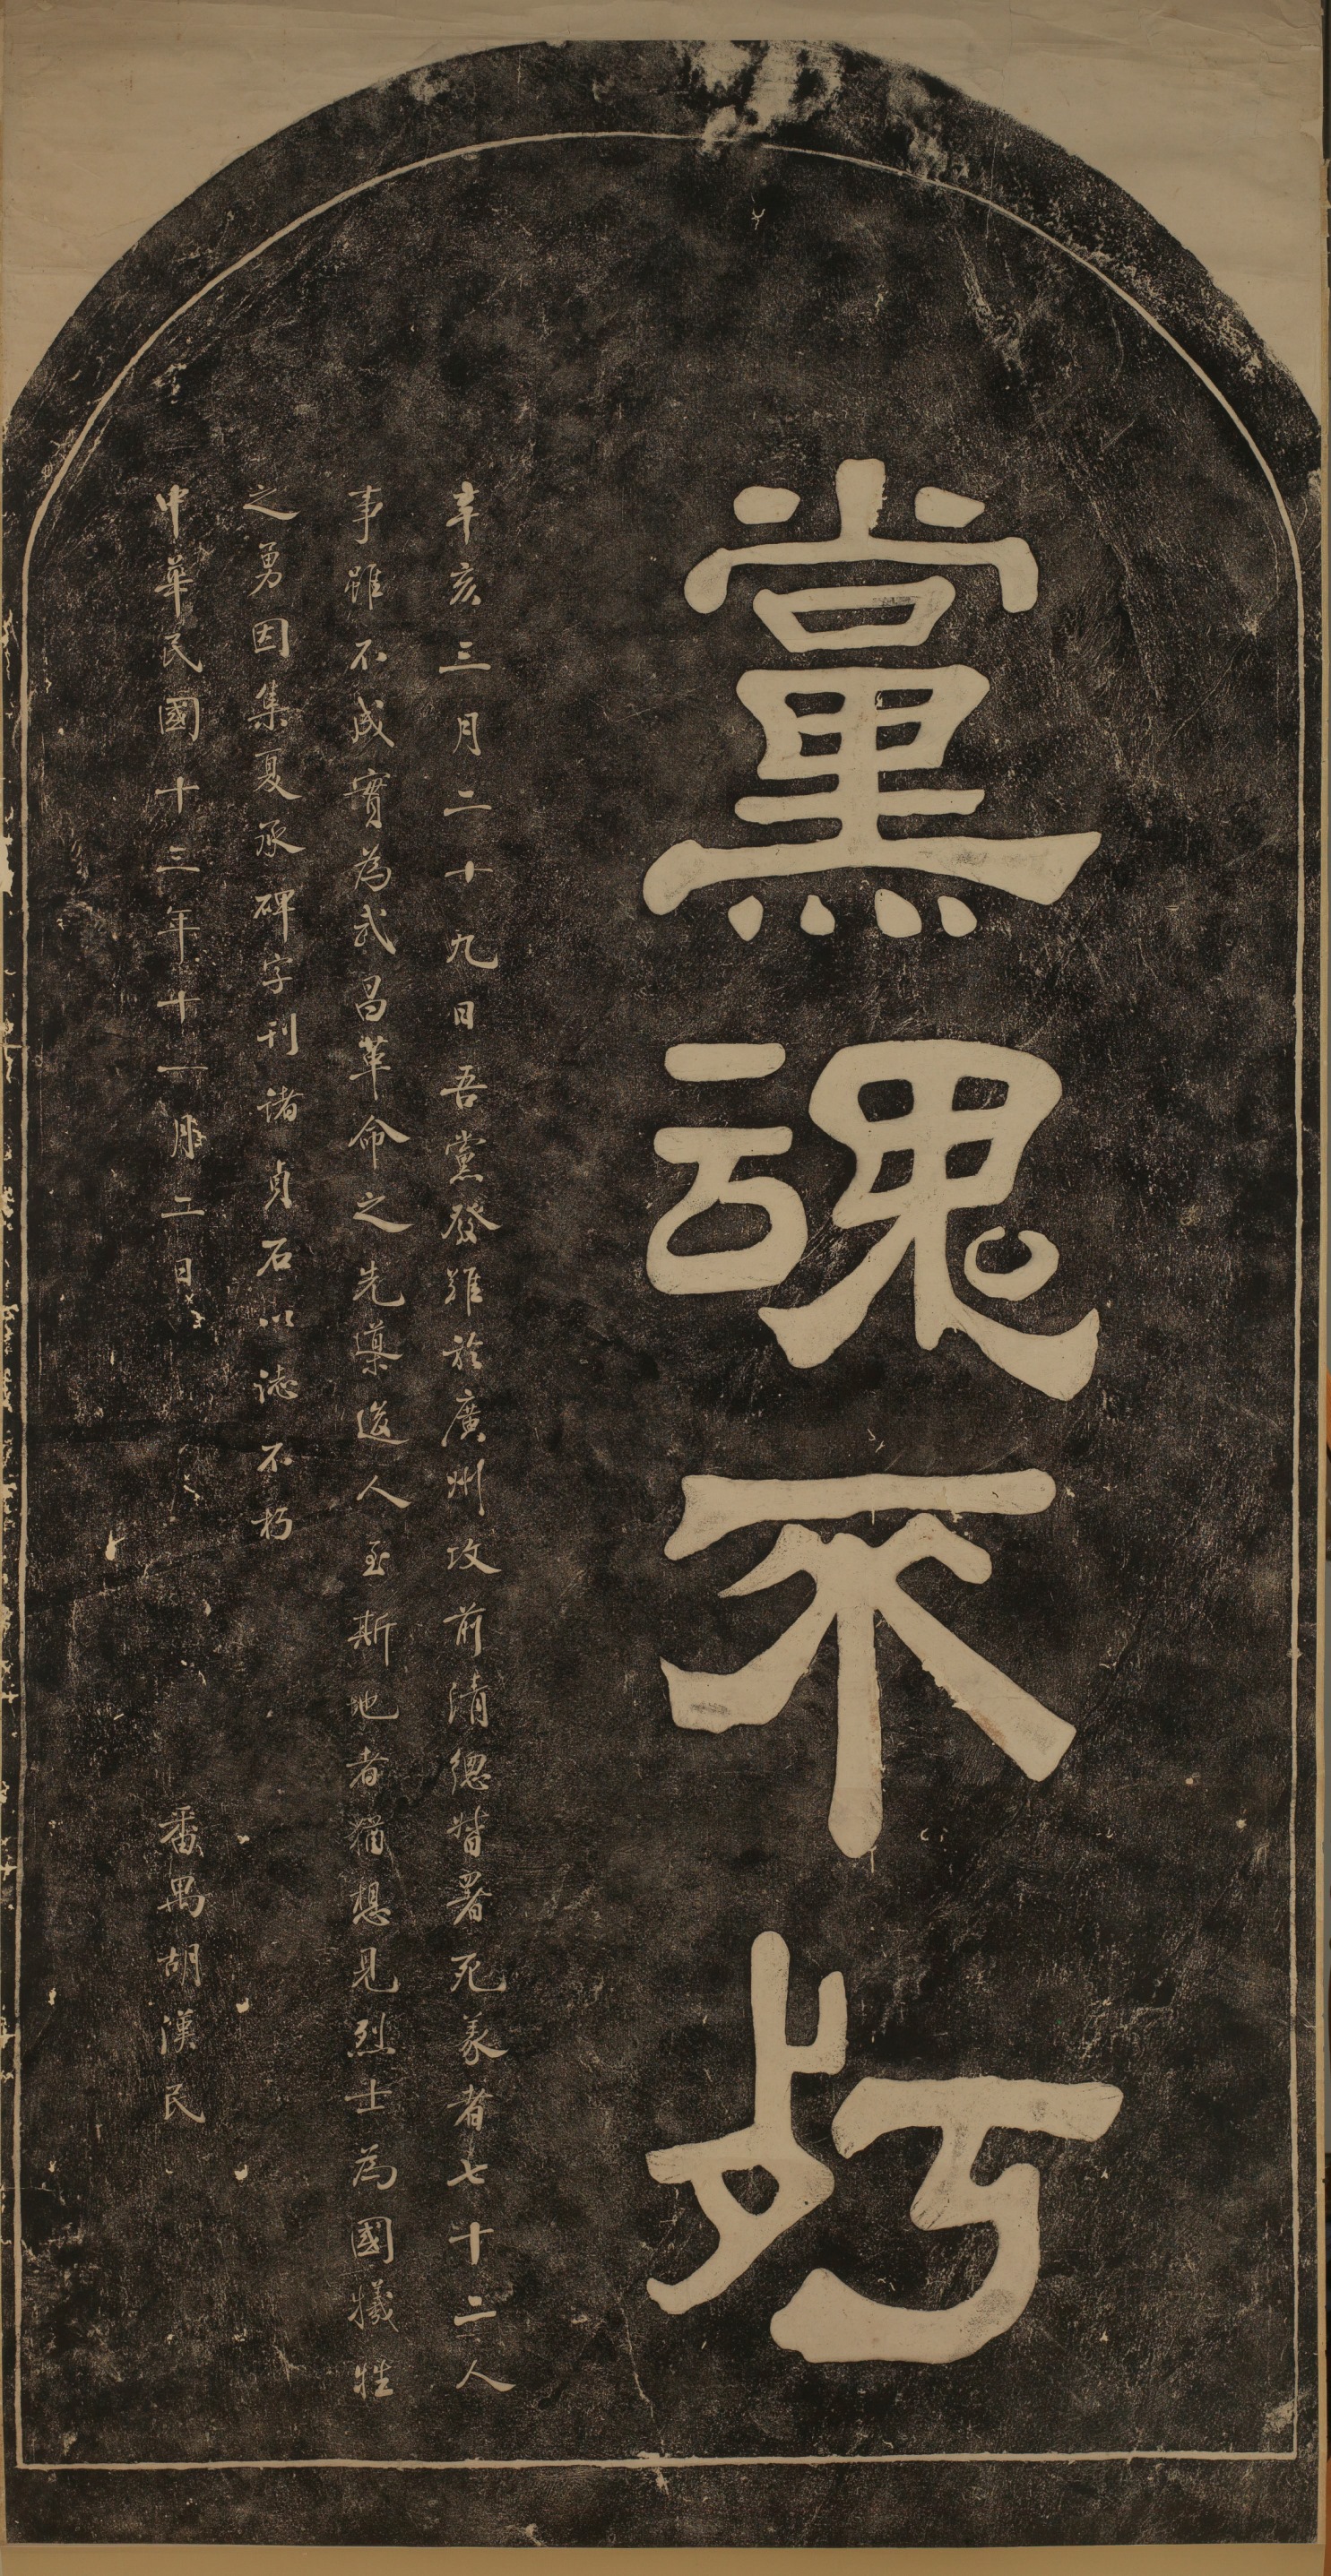 黨魂不朽
辛亥三月二十九日吾黨發難於廣州攻前清總督署死義者七十二人
事雖不成實為武昌革命之先導後人至斯地者猶想見烈士為國犧牲
之勇因集夏承碑字刊諸貞石以誌不朽
中華民國十三年十一月二日 番禺胡漢民